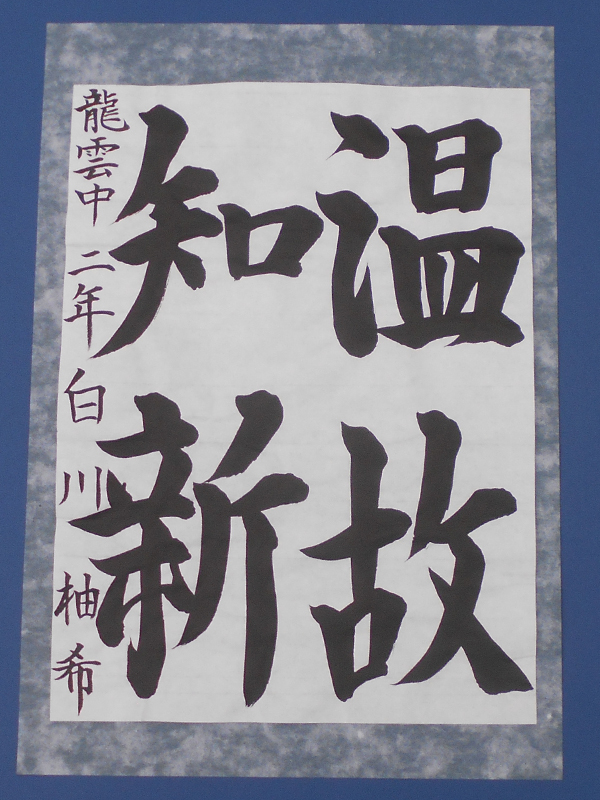 温故
知新
龍雲中 二年 白川 柚希